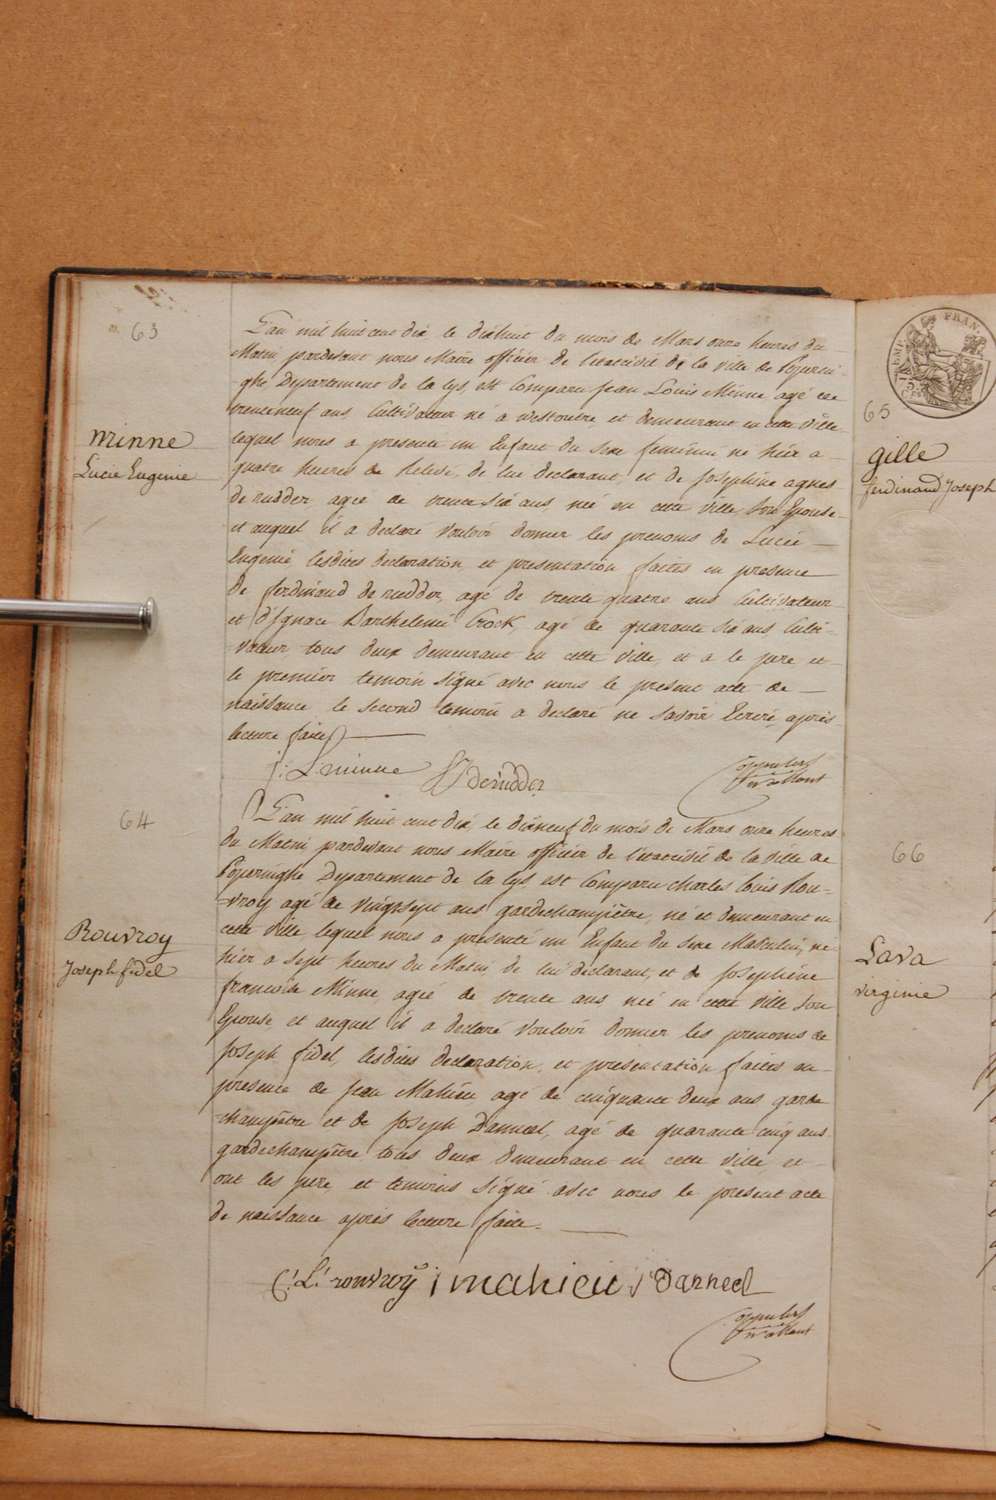 63
minne
Lucie Eugenie
L'an mil huit cent dix le dixhuit du mois de Mars onze heures du
Matin pardevant nous Maire officier de l'etatcivil de la ville de Poperin-
ghe Departement de la Lys, est Comparu Jean Louis Minne agé de
trenteneuf ans Cultivateur né a westoutre, et demeurant en cette ville
lequel nous a presenté un Enfant du sexe feminin né hier a
quatre heures de relevé, de lui declarant, et de Josephine agnes
de rudder, agée de trente six ans née en cette ville, son Epouse
et auquel il a declaré vouloir donner les prenoms de Lucie
Eugenie, lesdites declaration et presentation faites en presence
de ferdinand de rudder, agé de trente quatre ans Cultivateur
et d'Ignace Barthelemi Crock, agé de quarante six ans Culti-
vateur tous deux demeurant en cette ville, et a le pere et
le premier temoin signé avec nous le present acte de
naissance le second temoin a declaré ne savoir Ecrire, après
lecture faite
j: L minne
f Derudder
64
Rouvroy
Joseph fidel
L'an mil huit cent dix, le dixneuf du mois de Mars onze heures
du Matin pardevant nous Maire officier de l'etatcivil de la ville de
Poperinghe Departement de la Lys est Comparu Charles Louis Rou-
vroy agé de vingtsept ans gardechampêtre, né et demeurant en
cette ville, lequel nous a presenté un Enfant du sexe Masculin, né
hier a sept heures du Matin de lui declarant, et de Josephine
francoise Minne, agée de trente ans née en cette ville son
Epouse, et auquel il a declaré vouloir donner les prenoms de
Joseph fidel, lesdites declaration, et presentation faites en
presence de Jean Mahieu agé de cinquante deux ans garde
champêtre et de Joseph Danneel, agé de quarante cinq ans
gardechampêtre tous deux demeurant en cette ville, et
ont les pere et temoins signé avec nous le present acte
de naissance après lecture faite.
C: L: rouvroy
j mahieu
j Danneel
65
gille
ferdinand Joseph
66
Lava
virginie